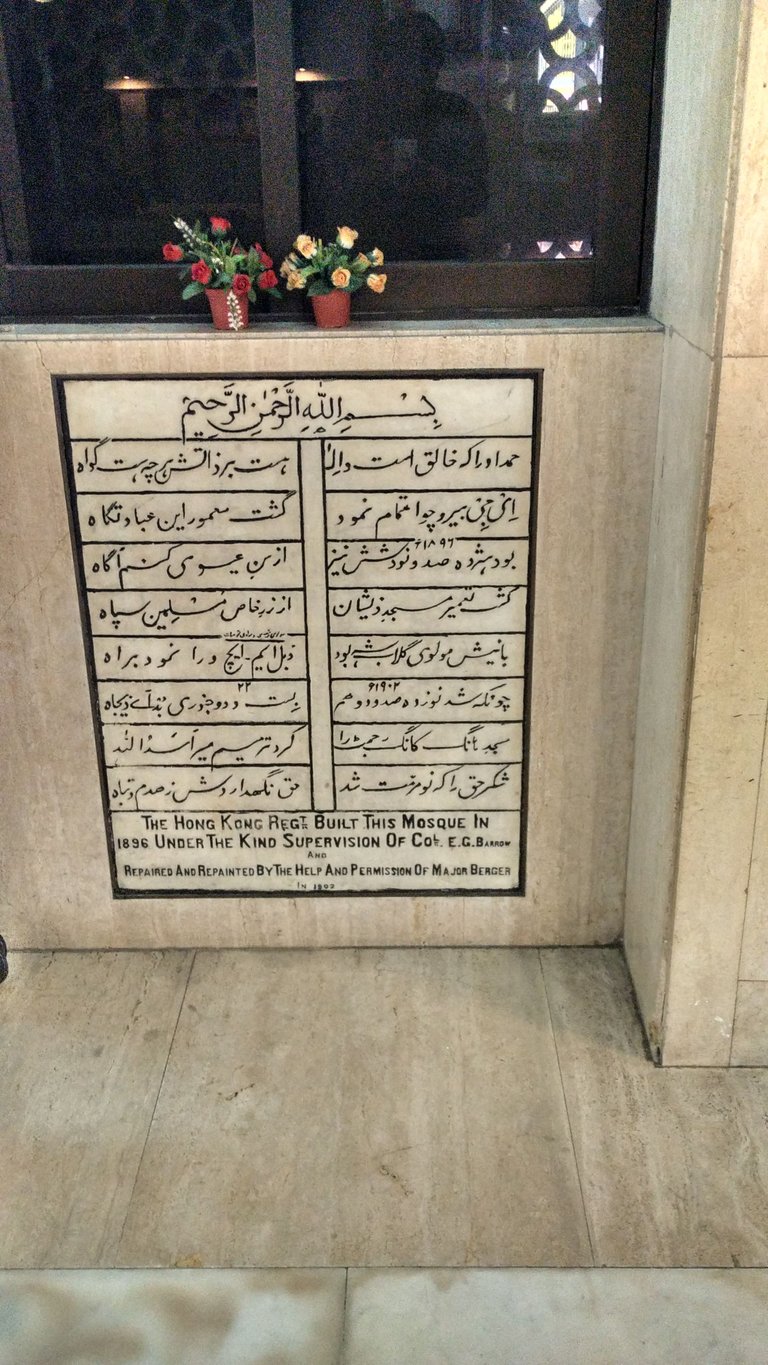 بِسْمِ اللّٰهِ الرَّحْمٰنِ الرَّحِيْمِ
حمد اورا کہ خالق است و الٰہ ہست بر ذاتش ہر چہ ہست گواہ
چو اتمام نمود گشت معمور این عبادتگاہ
۱۸۹۶ء
بود ہژدہ صد و نود شش نیز از سن عیسوی کنم آگاہ
گشت تعمیر مسجد ذیشان از زر خاص مسلمین سپاہ
بانیش مولوی گلاب شہ بود ورا نمود براہ
۱۹۰۲ء ۲۲
چونکہ شد نوزدہ صد و دو ہم بست و دو جنوری
مسجد ہانگ کانگ کرد ترمیم میر اسد اللہ
شکر حق را کہ نو مرمت شد حق نگہدارد
THE HONG KONG REGT. BUILT THIS MOSQUE IN
1896 UNDER THE KIND SUPERVISION OF COL. E.G. BARROW
AND
REPAIRED AND REPAINTED BY THE HELP AND PERMISSION OF MAJOR BERGER
IN 1902